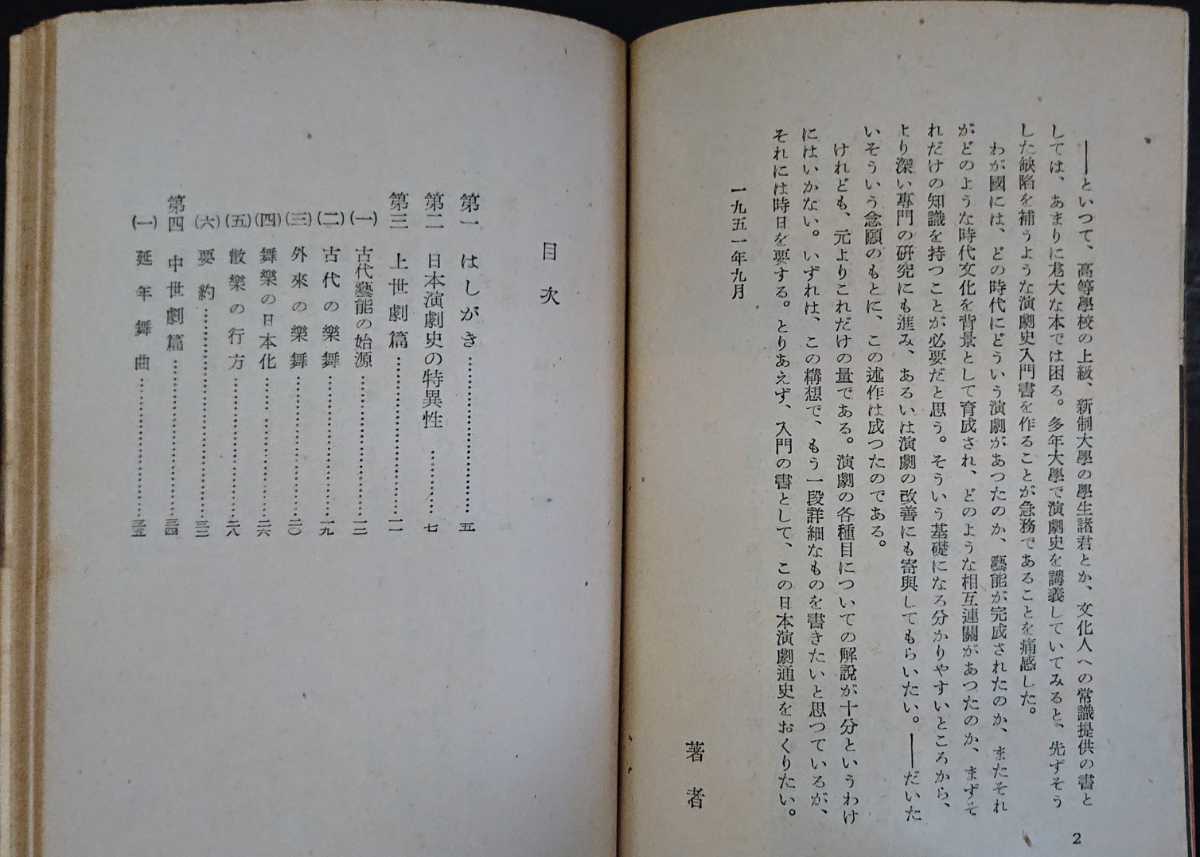 ――といつて、高等學校の上級、新制大學の學生諸君とか、文化人への常識提供の書と
しては、あまりに尨大な本では困る。多年大學で演劇史を講義していてみると、先ずそう
した缺陷を補うような演劇史入門書を作ることが急務であることを痛感した。
わが國には、どの時代にどういう演劇があつたのか、藝能が完成されたのか、またそれ
がどのような時代文化を背景として育成され、どのような相互連關があつたのか、まずそ
れだけの知識を持つことが必要だと思う。そういう基礎になる分かりやすいところから、
より深い專門の研究にも進み、あるいは演劇の改善にも寄與してもらいたい。――だいた
いそういう念願のもとに、この述作は成つたのである。
けれども、元よりこれだけの量である。演劇の各種目についての解說が十分というわけ
にはいかない。いずれは、この構想で、もう一段詳細なものを書きたいと思つているが、
それには時日を要する。とりあえず、入門の書として、この日本演劇通史をおくりたい。
一九五一年九月
著者
2
目次
第一 はしがき……………五
第二 日本演劇史の特異性……七
第三 上世劇篇……………一一
(一) 古代藝能の始源…………一二
(二) 古代の樂舞…………一九
(三) 外來の樂舞…………二〇
(四) 舞樂の日本化…………二六
(五) 散樂の行方…………二八
(六) 要約……………三三
第四 中世劇篇……………三四
(一) 延年舞曲…………三五